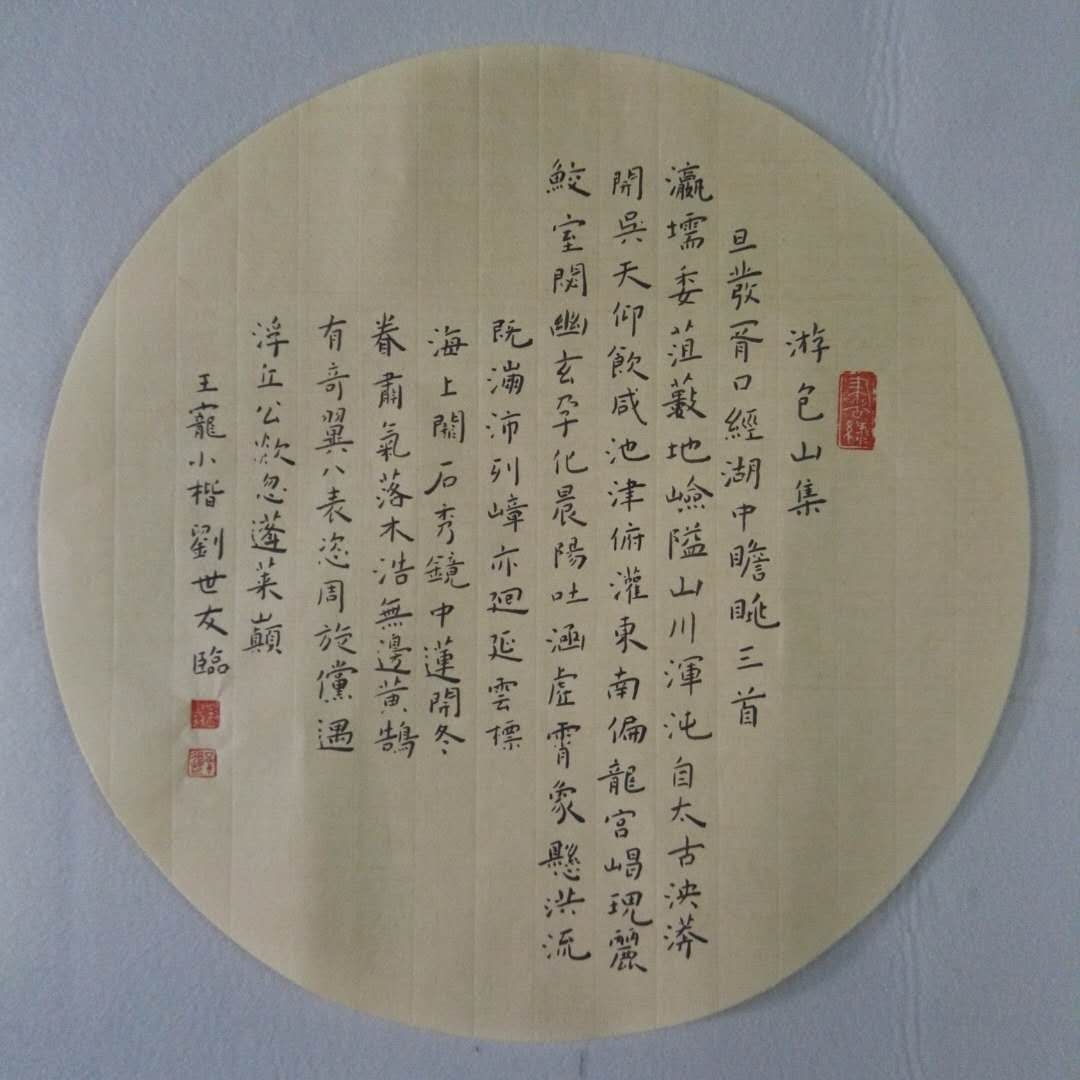 游包山集
旦發胥口經湖中瞻眺三首
瀛壖委菹藪地嶮隘山川渾沌自太古泱漭
開吳天仰飲咸池津俯灌東南偏龍宮崐瑰麗
鮫室閟幽玄孕化晨陽吐涵虛霄象懸洪流
既滿沛列嶂亦迴延雲標
海上關石秀鏡中蓮開冬
眷肅氣落木浩無邊黃鵠
有奇翼八表恣周旋儻遇
浮丘公欻忽蓬萊巔
王寵小楷劉世友臨